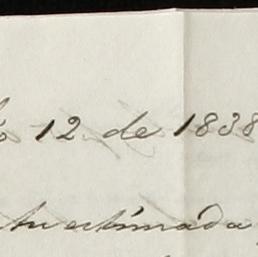 12 de 1838
tu estimada